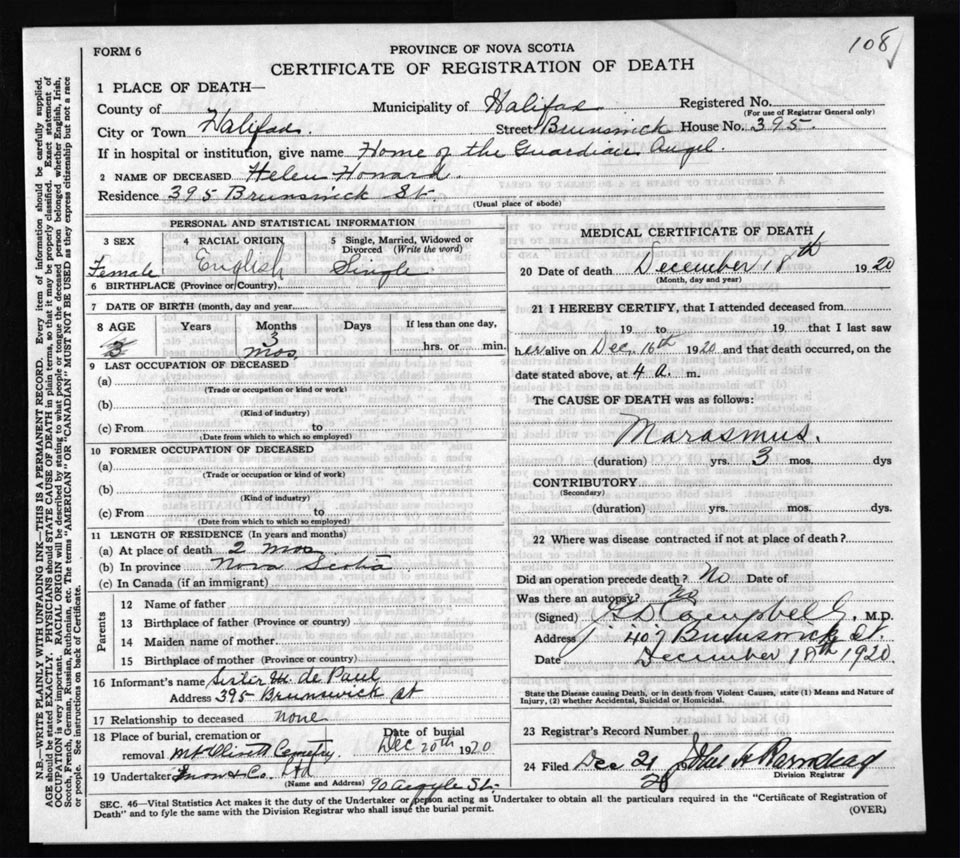 108
FORM 6
PROVINCE OF NOVA SCOTIA
CERTIFICATE OF REGISTRATION OF DEATH
1 PLACE OF DEATH—
County of Municipality of Halifax Registered No.
(For use of Registrar General only)
City or Town Halifax. Street Brunswick House No. 395.
If in hospital or institution, give name Home of the Guardian Angel.
2 NAME OF DECEASED Helen Howard.
Residence 395 Brunswick St.
(Usual place of abode)
PERSONAL AND STATISTICAL INFORMATION
3 SEX 4 RACIAL ORIGIN 5 Single, Married, Widowed or Divorced (Write the word)
Female English Single
6 BIRTHPLACE (Province or Country)
7 DATE OF BIRTH (month, day and year
8 AGE Years Months Days If less than one day,
3 3 mos. hrs. or min.
9 LAST OCCUPATION OF DECEASED
(a)
(Trade or occupation or kind or work)
(b)
(Kind of industry)
(c) From to
(Date from which to which so employed)
10 FORMER OCCUPATION OF DECEASED
(a)
(Trade or occupation or kind of work)
(b)
(Kind of industry)
(c) From to
(Date from which to which so employed)
11 LENGTH OF RESIDENCE (In years and months)
(a) At place of death 2 mos
(b) In province Nova Scotia
(c) In Canada (if an immigrant)
Parents
12 Name of father
13 Birthplace of father (Province or country)
14 Maiden name of mother
15 Birthplace of mother (Province or country)
16 Informant's name Sister M. de Paul
Address 395 Brunswick st
17 Relationship to deceased none
18 Place of burial, cremation or Date of burial
removal Mt Olivett Cemetry. Dec 20th 1920
19 Undertaker Snow & Co. Ltd
(Name and Address) 90 Argyle St.
MEDICAL CERTIFICATE OF DEATH
20 Date of death December 18th 1920
(Month, day and year)
21 I HEREBY CERTIFY, that I attended deceased from
19 to 19 that I last saw
her alive on Dec. 16th 1920 and that death occurred, on the
date stated above, at 4 a. m.
The CAUSE OF DEATH was as follows:
Marasmus.
(duration) yrs. 3 mos. dys
CONTRIBUTORY
(Secondary)
(duration) yrs. mos. dys.
22 Where was disease contracted if not at place of death?
Did an operation precede death? No Date of
Was there an autopsy? No
(Signed) G D Campbell M.D.
Address 407 Brunswick St.
Date December 18th 1920
State the Disease causing Death, or in death from Violent Causes, state (1) Means and Nature of
Injury, (2) whether Accidental, Suicidal or Homicidal.
23 Registrar's Record Number
24 Filed Dec 21 20 John A
Division Registrar
SEC. 46—Vital Statistics Act makes it the duty of the Undertaker or person acting as Undertaker to obtain all the particulars required in the "Certificate of Registration of
Death" and to fyle the same with the Division Registrar who shall issue the burial permit.
(OVER)
N.B.—WRITE PLAINLY WITH UNFADING INK—THIS IS A PERMANENT RECORD. Every item of information should be carefully supplied.
AGE should be stated EXACTLY. PHYSICIANS should STATE CAUSE OF DEATH in plain terms, so that it may be properly classified. Exact statement of
OCCUPATION is very important. RACIAL ORIGIN will be described by stating to what people or tongue the deceased person belonged whether English, Irish,
Scotch, French, German, Russian, Ruthenian, etc. The terms "AMERICAN" OR "CANADIAN" MUST NOT BE USED as they express citizenship but not a race
or people. See instructions on back of Certificate.